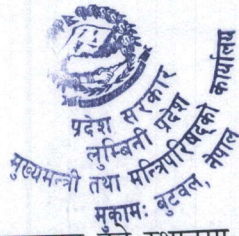 प्रदेश सरकार
लुम्बिनी प्रदेश
मुख्यमन्त्री तथा मन्त्रिपरिषद्को कार्यालय
मुकामः बुटवल, नेपाल